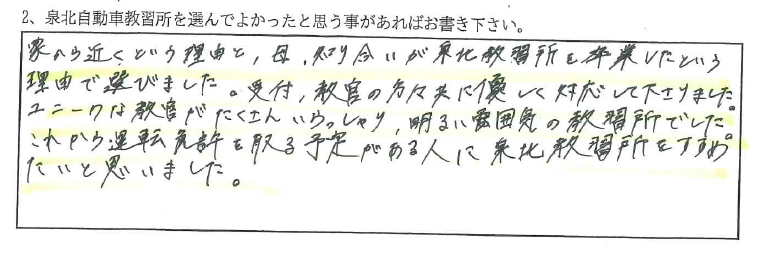 2、泉北自動車教習所を選んでよかったと思う事があればお書き下さい。
家から近くという理由と,母,知り合いが泉北教習所を卒業したという
理由で選びました。受付,教官の方々共に優しく対応して下さりました。
ユニークな教官がたくさんいらっしゃり,明るい雰囲気の教習所でした。
これから運転免許を取る予定がある人に泉北教習所をすすめ
たいと思いました。